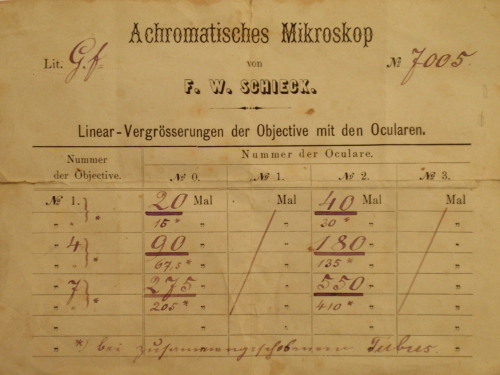 Achromatisches Mikroskop
Lit. G.f. von № 7005.
F. W. SCHIECK.
Linear-Vergrösserungen der Objective mit den Ocularen.
Nummer der Objective. Nummer der Oculare.
№ 0. № 1. № 2. № 3.
№ 1. 20 Mal Mal 40 Mal Mal
" " 15* " " 30* " "
" 4 90 " " 180 " "
" " 67,5* " " 135* " "
" 7 275 " " 550 " "
" " 205* " " 410* " "
" " " " "
*) bei zusammengeschobenem Tubus.